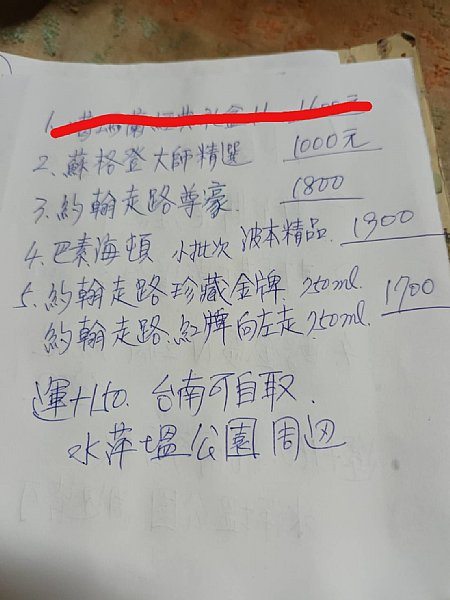 1. 1600元
2. 蘇格登大師精選 1000元
3. 約翰走路尊豪. 1800
4. 巴素海頓 小批次 波本精品. 1300
5. 約翰走路珍藏金牌. 750ml. 1700
約翰走路.紅牌向左走 750ml.
運+150. 台南可自取.
水萍塭公園 周边